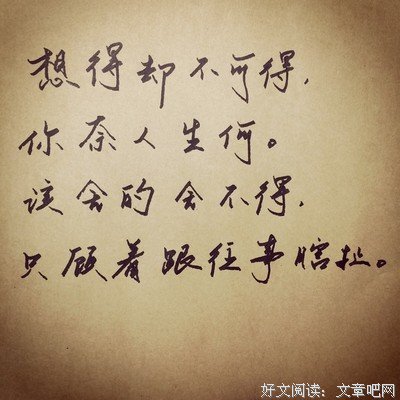 想得却不可得，
你奈人生何。
该舍的舍不得，
只顾着跟往事瞎扯。
好文阅读：文章吧网